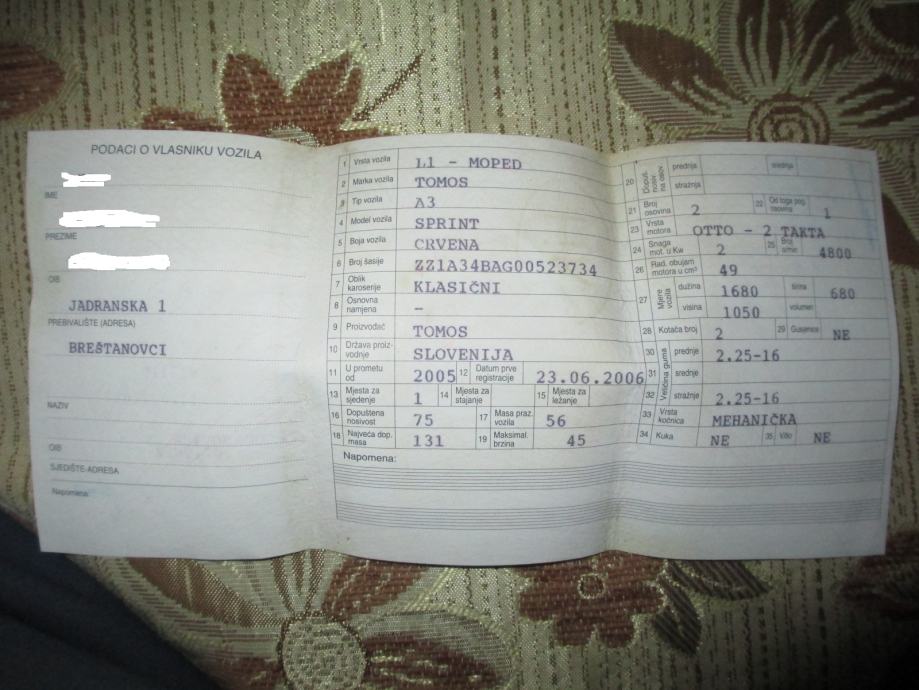 PODACI O VLASNIKU VOZILA
IME
PREZIME
OIB
JADRANSKA 1
PREBIVALIŠTE (ADRESA)
BREŠTANOVCI
NAZIV
OIB
SJEDIŠTE-ADRESA
Napomena:
1 Vrsta vozila L1 - MOPED
2 Marka vozila TOMOS
3 Tip vozila A3
4 Model vozila SPRINT
5 Boja vozila CRVENA
6 Broj šasije ZZ1A34BAG00523734
7 Oblik karoserije KLASIČNI
8 Osnovna namjena -
9 Proizvođač TOMOS
10 Država proiz-vodnje SLOVENIJA
11 U prometu od 2005 12 Datum prve registracije 23.06.2006
13 Mjesta za sjedenje 1 14 Mjesta za stajanje 15 Mjesta za ležanje
16 Dopuštena nosivost 75 17 Masa praz. vozila 56
18 Najveća dop. masa 131 19 Maksimal. brzina 45
Napomena:
20 Dopuš. nosiv. na osov. prednja srednja
stražnja
21 Broj osovina 2 22 Od toga pog. osovina 1
23 Vrsta motora OTTO - 2 TAKTA
24 Snaga mot. u Kw 2 25 Broj o/min 4800
26 Rad. obujam motora u cm³ 49
27 Mjere vozila dužina 1680 širina 680
visina 1050 volumen
28 Kotača broj 2 29 Gusjenice NE
30 Veličina guma prednje 2.25-16
31 srednje
32 stražnje 2.25-16
33 Vrsta kočnica MEHANIČKA
34 Kuka NE 35 Vitlo NE